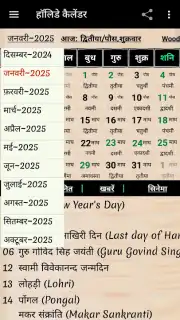 हॉलिडे कैलेंडर
जनवरी-2025 आज: द्वितीया/पौस,शुक्रवार Wood
दिसम्बर-2024
जनवरी-2025
फ़रवरी-2025
मार्च-2025
अप्रैल-2025
मई-2025
जून-2025
जुलाई-2025
अगस्त-2025
सितम्बर-2025
अक्टूबर-2025
ल बुध गुरु शुक्र शनि
1 2 3 4
8 9 10 11
15 16 17 18
22 23 24 25
29 30 31
खबरें सिनेमा
w Year's Day)
आखिरी दिन (Last day of Han
06 गुरु गोविंद सिंह जयंती (Guru Govind Sing
12 स्वामी विवेकानन्द जन्मदिन
13 लोहड़ी (Lohri)
14 पोंगल (Pongal)
मकर संक्रांति (Makar Sankranti)